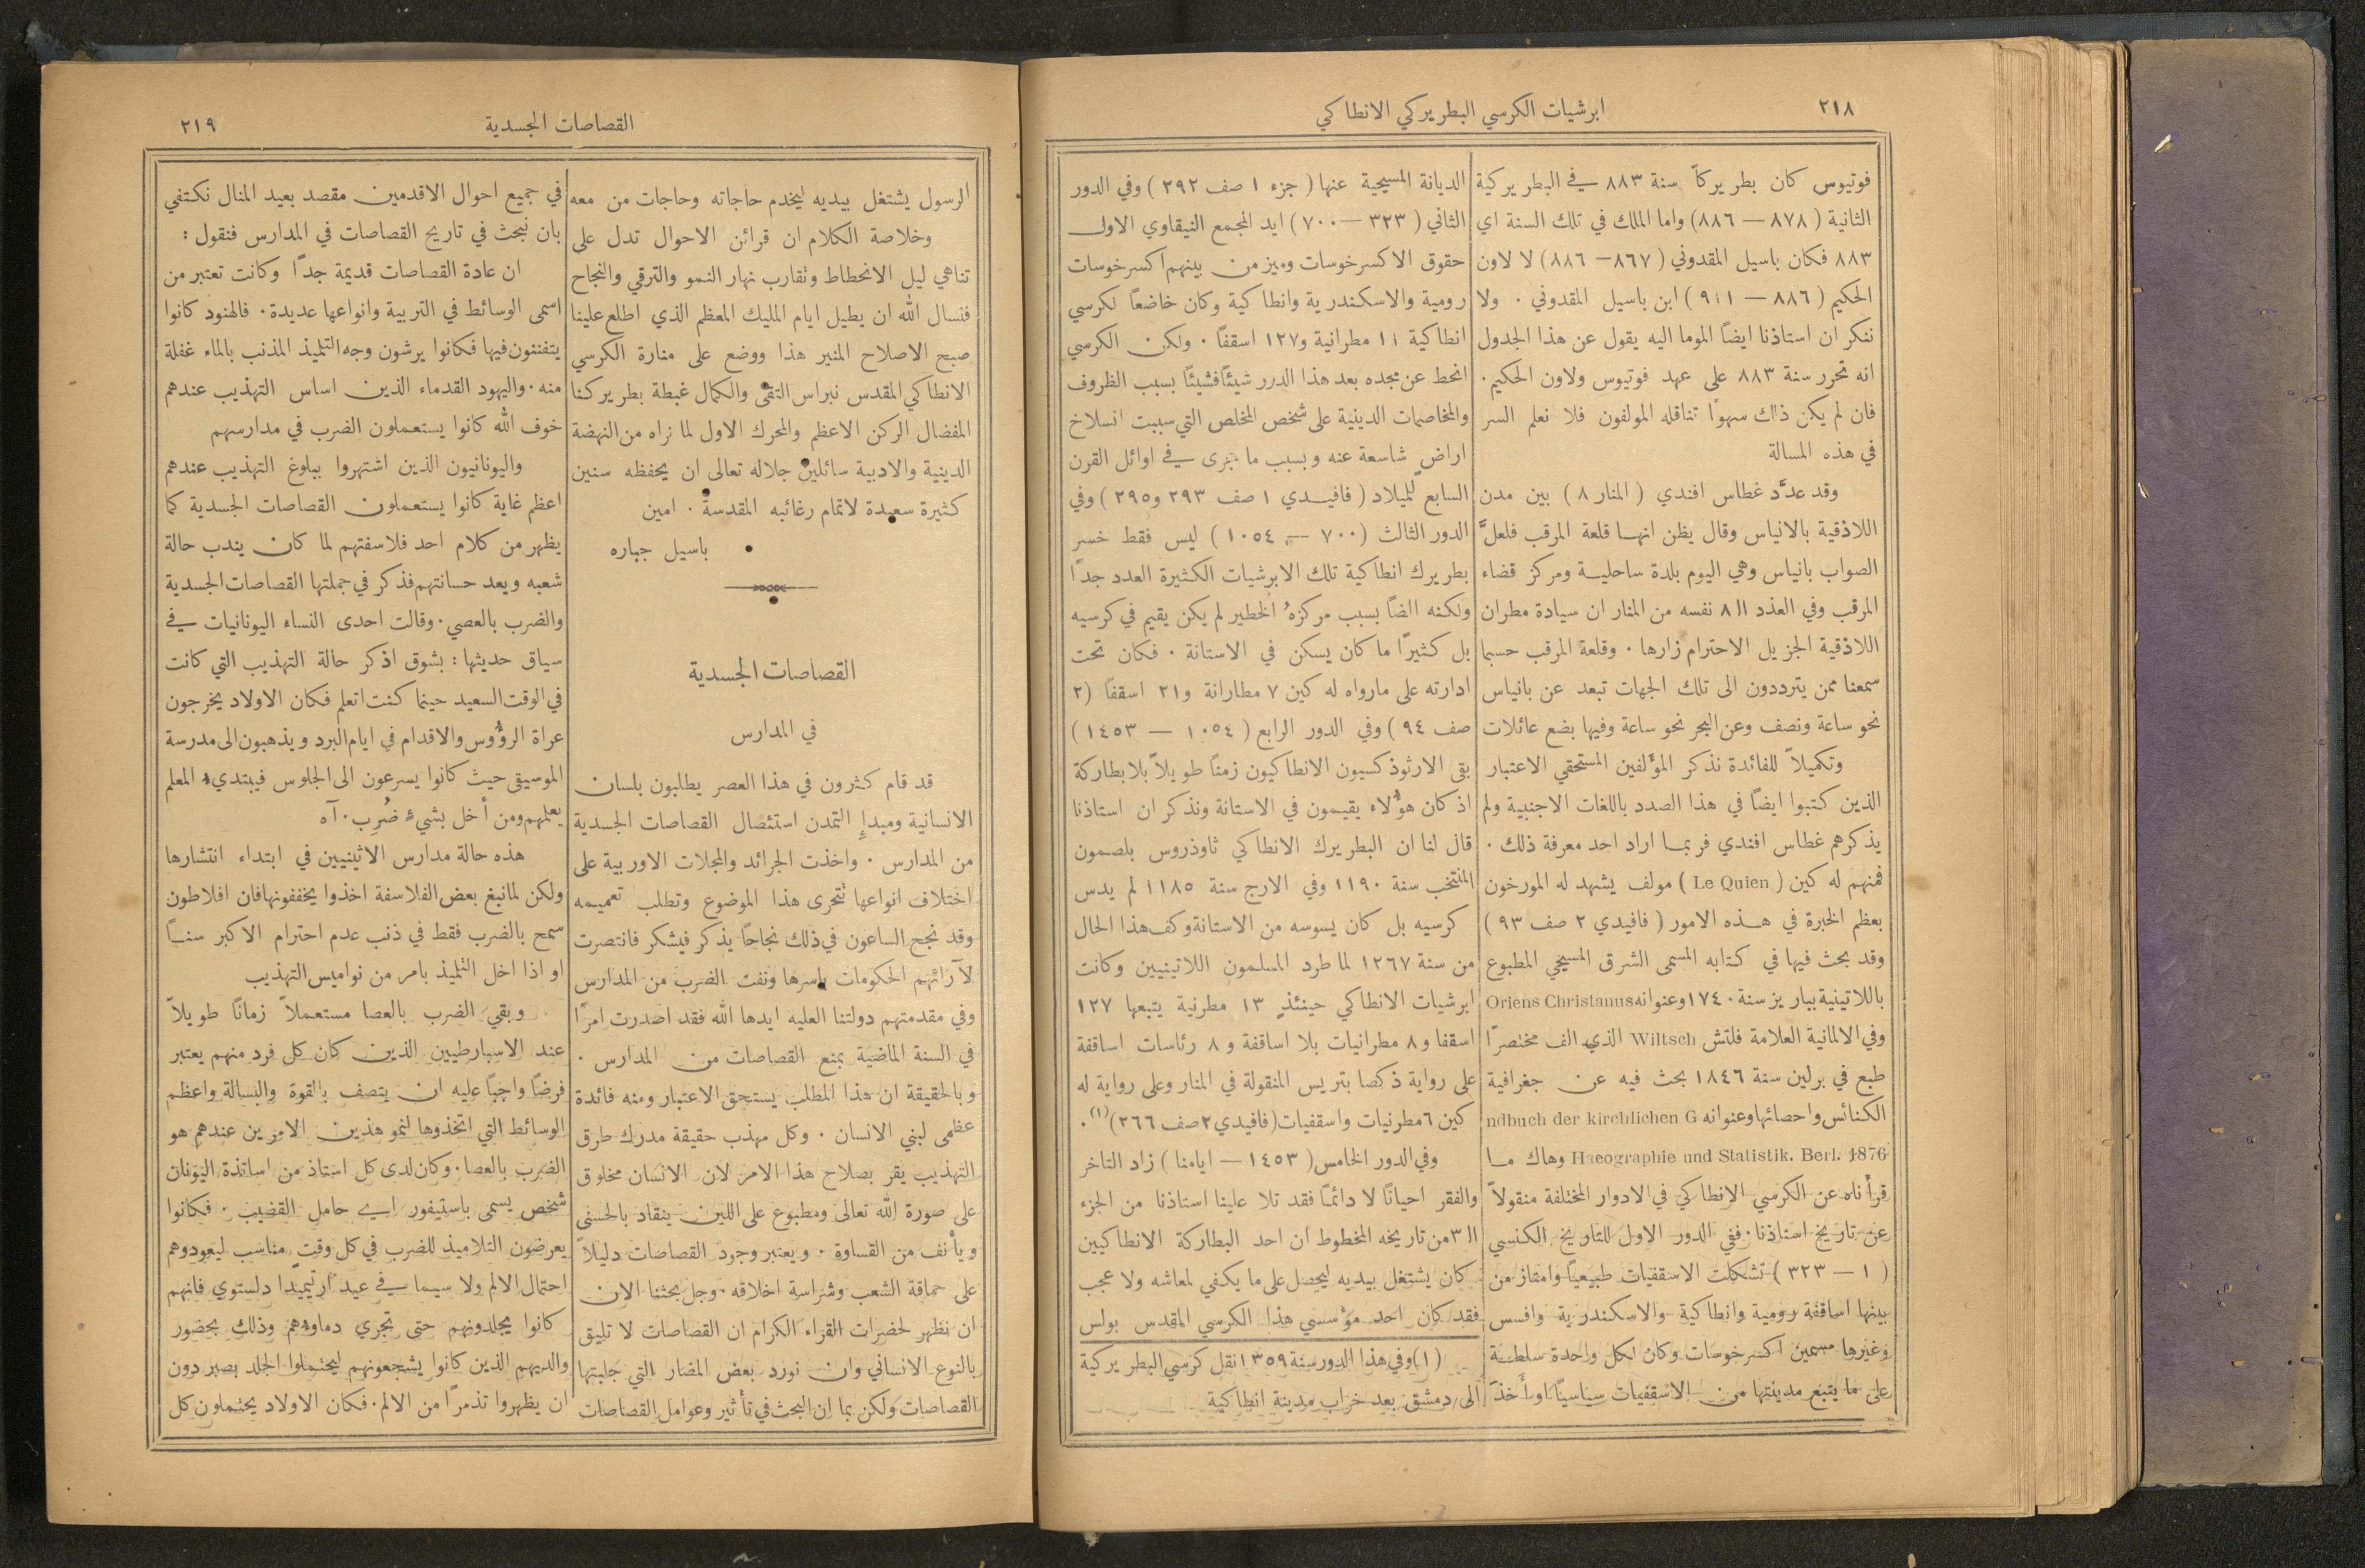 ٢١٨
ابرشيات الكرسي البطريركي الانطاكي
فوتيوس كان بطريركاً سنة ٨٨٣ في البطريركية
الثانية (٨٧٨ — ٨٨٦) واما الملك في تلك السنة اي
٨٨٣ فكان باسيل المقدوني (٨٦٧— ٨٨٦) لا لاون
الحكيم (٨٨٦ — ٩١١) ابن باسيل المقدوني . ولا
ننكر ان استاذنا ايضاً الموما اليه يقول عن هذا الجدول
انه تحرر سنة ٨٨٣ على عهد فوتيوس ولاون الحكيم .
فان لم يكن ذاك سهواً تناقله المولفون فلا نعلم السر
في هذه المسالة
وقد عدَّد غطاس افندي (المنار ٨) بين مدن
اللاذقية بالانياس وقال يظن انها قلعة المرقب فلعلَّ
الصواب بانياس وهي اليوم بلدة ساحلية ومركز قضاء
المرقب وفي العذد الـ ٨ نفسه من المنار ان سيادة مطران
اللاذقية الجزيل الاحترام زارها . وقلعة المرقب حسبما
سمعنا ممن يترددون الى تلك الجهات تبعد عن بانياس
نحو ساعة ونصف وعن البحر نحو ساعة وفيها بضع عائلات
وتكميلاً للفائدة نذكر المؤلفين المستحقي الاعتبار
الذين كتبوا ايضاً في هذا الصدد باللغات الاجنبية ولم
يذكرهم غطاس افندي فربما اراد احد معرفة ذلك .
فمنهم له كين (Le Quien) مولف يشهد له المورخون
بعظم الخبرة في هذه الامور (فافيدي ٢ صف ٩٣)
وقد بحث فيها في كتابه المسمى الشرق المسيحي المطبوع
باللاتينية بباريز سنة ١٧٤٠ وعنوانه Oriens Christanus
وفي الالمانية العلامة فلتش Wiltsch الذي الف مختصراً
طبع في برلين سنة ١٨٤٦ بحث فيه عن جغرافية
الكنائس واحصائها وعنوانه ndbuch der kirchlichen G
Haeographie und Statistik. Berl. 1876 وهاك ما
قرأناه عن الكرسي الانطاكي في الادوار المختلفة منقولاً
عن تاريخ استاذنا . ففي الدور الاول للتاريخ الكنسي
(١ — ٣٢٣) تشكلت الاسقفيات طبيعياً وامتاز من
بينها اساقفة رومية وانطاكية والاسكندرية وافسس
وغيرها مسمين اكسرخوسات وكان لكل واحدة سلطة
على ما يتبع مدينتها من الاسقفيات سياسياً او أَخذَ
الديانة المسيحية عنها (جزء ١ صف ٢٩٢) وفي الدور
الثاني (٣٢٣ — ٧٠٠) ايد المجمع النيقاوي الاول
حقوق الاكسرخوسات وميز من بينهم اكسرخوسات
رومية والاسكندرية وانطاكية وكان خاضعاً لكرسي
انطاكية ١١ مطرانية و١٢٧ اسقفاً . ولكن الكرسي
انحط عن مجده بعد هذا الدرر شيئاً فشيئاً بسبب الظروف
والمخاصمات الدينية على شخص المخلص التي سببت انسلاخ
اراضٍ شاسعة عنه وبسبب ما جرى في اوائل القرن
السابع للميلاد (فافيدي ١ صف ٢٩٣ و٢٩٥) وفي
الدور الثالث (٧٠٠ — ١٠٥٤) ليس فقط خسر
بطريرك انطاكية تلك الابرشيات الكثيرة العدد جداً
ولكنه الضاً بسبب مركزهُ الخطير لم يكن يقيم في كرسيه
بل كثيراً ما كان يسكن في الاستانة . فكان تحت
ادارته على مارواه له كين ٧ مطارانة و٢١ اسقفاً (٢
صف ٩٤) وفي الدور الرابع (١٠٥٤ — ١٤٥٣)
بقي الارثوذكسيون الانطاكيون زمناً طويلاً بلا بطاركة
اذ كان هؤلاء يقيمون في الاستانة ونذكر ان استاذنا
قال لنا ان البطريرك الانطاكي ثاوذروس بلصمون
المنتخب سنة ١١٩٠ وفي الارج سنة ١١٨٥ لم يدس
كرسيه بل كان يسوسه من الاستانة وكف هذا الحال
من سنة ١٢٦٧ لما طرد المسلمون اللاتينيين وكانت
ابرشيات الانطاكي حينئذٍ ١٣ مطرنية يتبعها ١٢٧
اسقفا و٨ مطرانيات بلا اساقفة و ٨ رئاسات اساقفة
على رواية ذكصا بتريس المنقولة في المنار وعلى رواية له
كين ٦ مطرنيات واسقفيات (فافيدي ٢ صف ٢٦٦)(١) .
وفي الدور الخامس (١٤٥٣ — ايامنا) زاد التاخر
والفقر احياناً لا دائماً فقد تلا علينا استاذنا من الجزء
الـ ٣ من تاريخه المخطوط ان احد البطاركة الانطاكيين
كان يشتغل بيديه ليحصل على ما يكفي لمعاشه ولا عجب
فقد كان احد مؤسسي هذا الكرسي المقدس بولس
(١) وفي هذا الدور سنة ١٣٥٩ نقل كرسي البطريركية
الى دمشق بعد خراب مدينة انطاكية
القصاصات الجسدية
٢١٩
الرسول يشتغل بيديه ليخدم حاجاته وحاجات من معه
وخلاصة الكلام ان قرائن الاحوال تدل على
تناهي ليل الانحطاط وتقارب نهار النمو والترقي والنجاح
فنسال الله ان يطيل ايام المليك المعظم الذي اطلع علينا
صبح الاصلاح المنير هذا ووضع على منارة الكرسي
الانطاكي المقدس نبراس التقى والكمال غبطة بطريركنا
المفضال الركن الاعظم والمحرك الاول لما نراه من النهضة
الدينية والادبية سائلين جلاله تعالى ان يحفظه سنين
كثيرة سعيدة لاتمام رغائبه المقدسة . امين
باسيل جباره
القصاصات الجسدية
في المدارس
قد قام كثرون في هذا العصر يطلبون بلسان
الانسانية ومبدإِ التمدن استئصال القصاصات الجسدية
من المدارس . واخذت الجرائد والمجلات الاوربية على
اختلاف انواعها تتحرى هذا الموضوع وتطلب تعميمه
وقد نجح الساعون في ذلك نجاحاً يذكر فيشكر فانتصرت
لآرائهم الحكومات باسرها ونفت الضرب من المدارس
وفي مقدمتهم دولتنا العليه ايدها الله فقد اصدرت امراً
في السنة الماضية بمنع القصاصات من المدارس .
وبالحقيقة ان هذا المطلب يستحق الاعتبار ومنه فائدة
عظمى لبني الانسان . وكل مهذب حقيقة مدرك طرق
التهذيب يقر بصلاح هذا الامر لان الانسان مخلوق
على صورة الله تعالى ومطبوع على اللين ينقاد بالحسنى
ويأنف من القساوة . ويعتبر وجود القصاصات دليلاً
على حماقة الشعب وشراسة اخلاقه . وجل بحثنا الان
ان نظهر لحضرات القراء الكرام ان القصاصات لا تليق
بالنوع الانساني وان نورد بعض المضار التي جلبتها
القصاصات ولكن بما ان البحث في تأثير وعوامل القصاصات
في جميع احوال الاقدمين مقصد بعيد المنال نكتفي
بان نبحث في تاريخ القصاصات في المدارس فنقول :
ان عادة القصاصات قديمة جداً وكانت تعتبر من
اسمى الوسائط في التربية وانواعها عديدة . فالهنود كانوا
يتفننون فيها فكانوا يرشون وجه التلميذ المذنب بالماء غفلة
منه . واليهود القدماء الذين اساس التهذيب عندهم
خوف الله كانوا يستعملون الضرب في مدارسهم
واليونانيون الذين اشتهروا ببلوغ التهذيب عندهم
اعظم غاية كانوا يستعملون القصاصات الجسدية كما
يظهر من كلام احد فلاسفتهم لما كان يندب حالة
شعبه ويعد حسانتهم فذكر في جملتها القصاصات الجسدية
والضرب بالعصي . وقالت احدى النساء اليونانيات في
سياق حديثها : بشوق اذكر حالة التهذيب التي كانت
في الوقت السعيد حينما كنت اتعلم فكان الاولاد يخرجون
عراة الرؤوس والاقدام في ايام البرد ويذهبون الى مدرسة
الموسيقى حيث كانوا يسرعون الى الجلوس فيبتديء المعلم
يعلمهم ومن أخل بشيءٍ ضُرِب . اه
هذه حالة مدارس الاثينيين في ابتداء انتشارها
ولكن لما نبغ بعض الفلاسفة اخذوا يخففونها فان افلاطون
سمح بالضرب فقط في ذنب عدم احترام الاكبر سناً
او اذا اخل التلميذ بامر من نواميس التهذيب
وبقي الضرب بالعصا مستعملاً زماناً طويلاً
عند الاسبارطيين الذين كان كل فرد منهم يعتبر
فرضاً واجباً عليه ان يتصف بالقوة والبسالة واعظم
الوسائط التي اتخذوها لنمو هذين الامرين عندهم هو
الضرب بالعصا . وكان لدى كل استاذ من اساتذة اليونان
شخص يسمى باستيفور اي حامل القضيب . فكانوا
يعرضون التلاميذ للضرب في كل وقتٍ مناسب ليعودوهم
احتمال الالم ولا سيما في عيد ارتيميدا دلستوي فانهم
كانوا يجلدونهم حتى تجري دماؤهم وذلك بحضور
والديهم الذين كانوا يشجعونهم ليحتملوا الجلد بصبر دون
ان يظهروا تذمراً من الالم . فكان الاولاد يحتملون كل